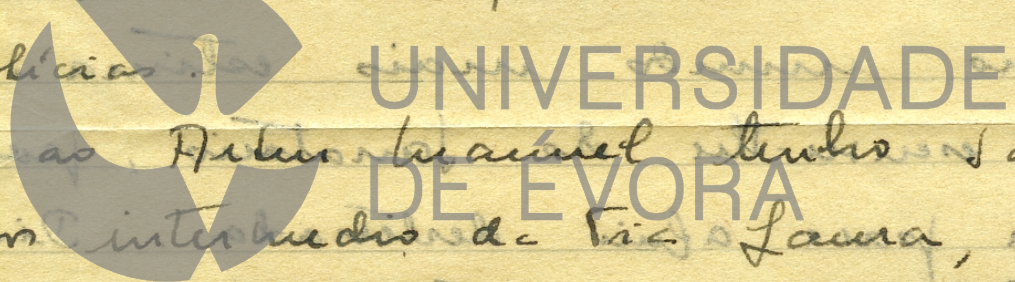 lícias.
UNIVERSIDADE
DE ÉVORA
ao Artur Manuel tenho
intermedio da Tia Laura,